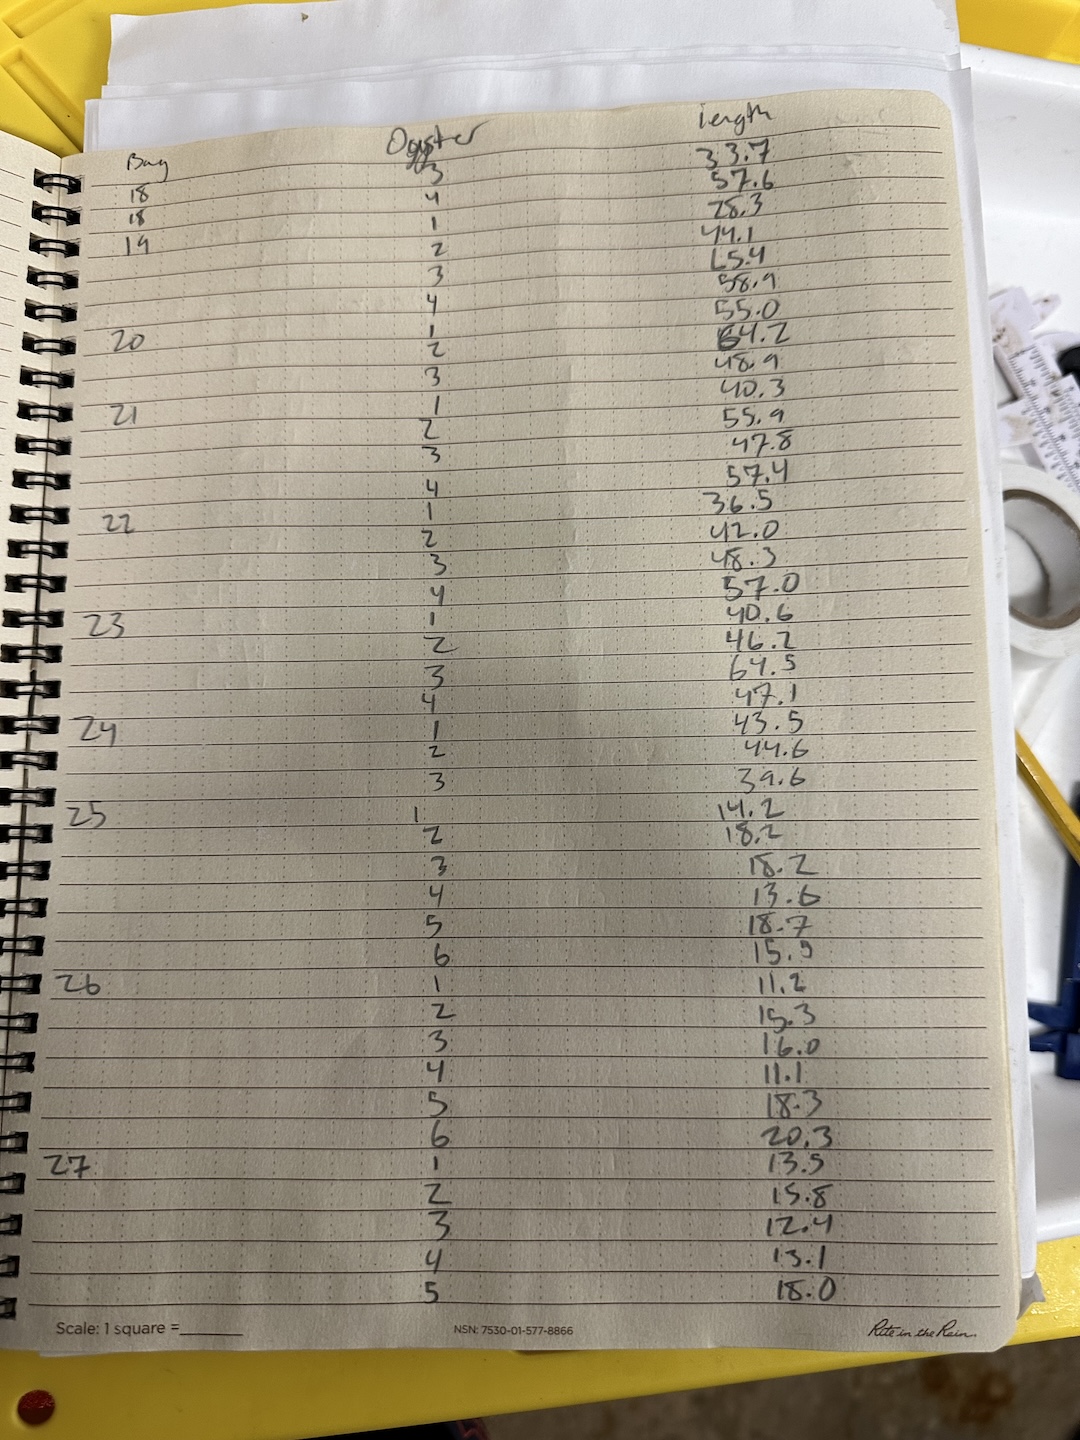 Bag Oyster length
18 3 33.7
18 4 57.6
19 1 28.3
2 44.1
3 65.4
4 58.9
20 1 55.0
2 64.2
3 48.9
21 1 40.3
2 55.9
3 47.8
4 57.4
22 1 36.5
2 42.0
3 48.3
4 57.0
23 1 40.6
2 46.2
3 64.5
4 47.1
24 1 43.5
2 44.6
3 39.6
25 1 14.2
2 18.2
3 18.2
4 13.6
5 18.7
6 15.9
26 1 11.2
2 15.3
3 16.0
4 11.1
5 18.3
6 20.3
27 1 13.5
2 15.8
3 12.4
4 13.1
5 18.0
Scale: 1 square =______ NSN: 7530-01-577-8866 Rite in the Rain